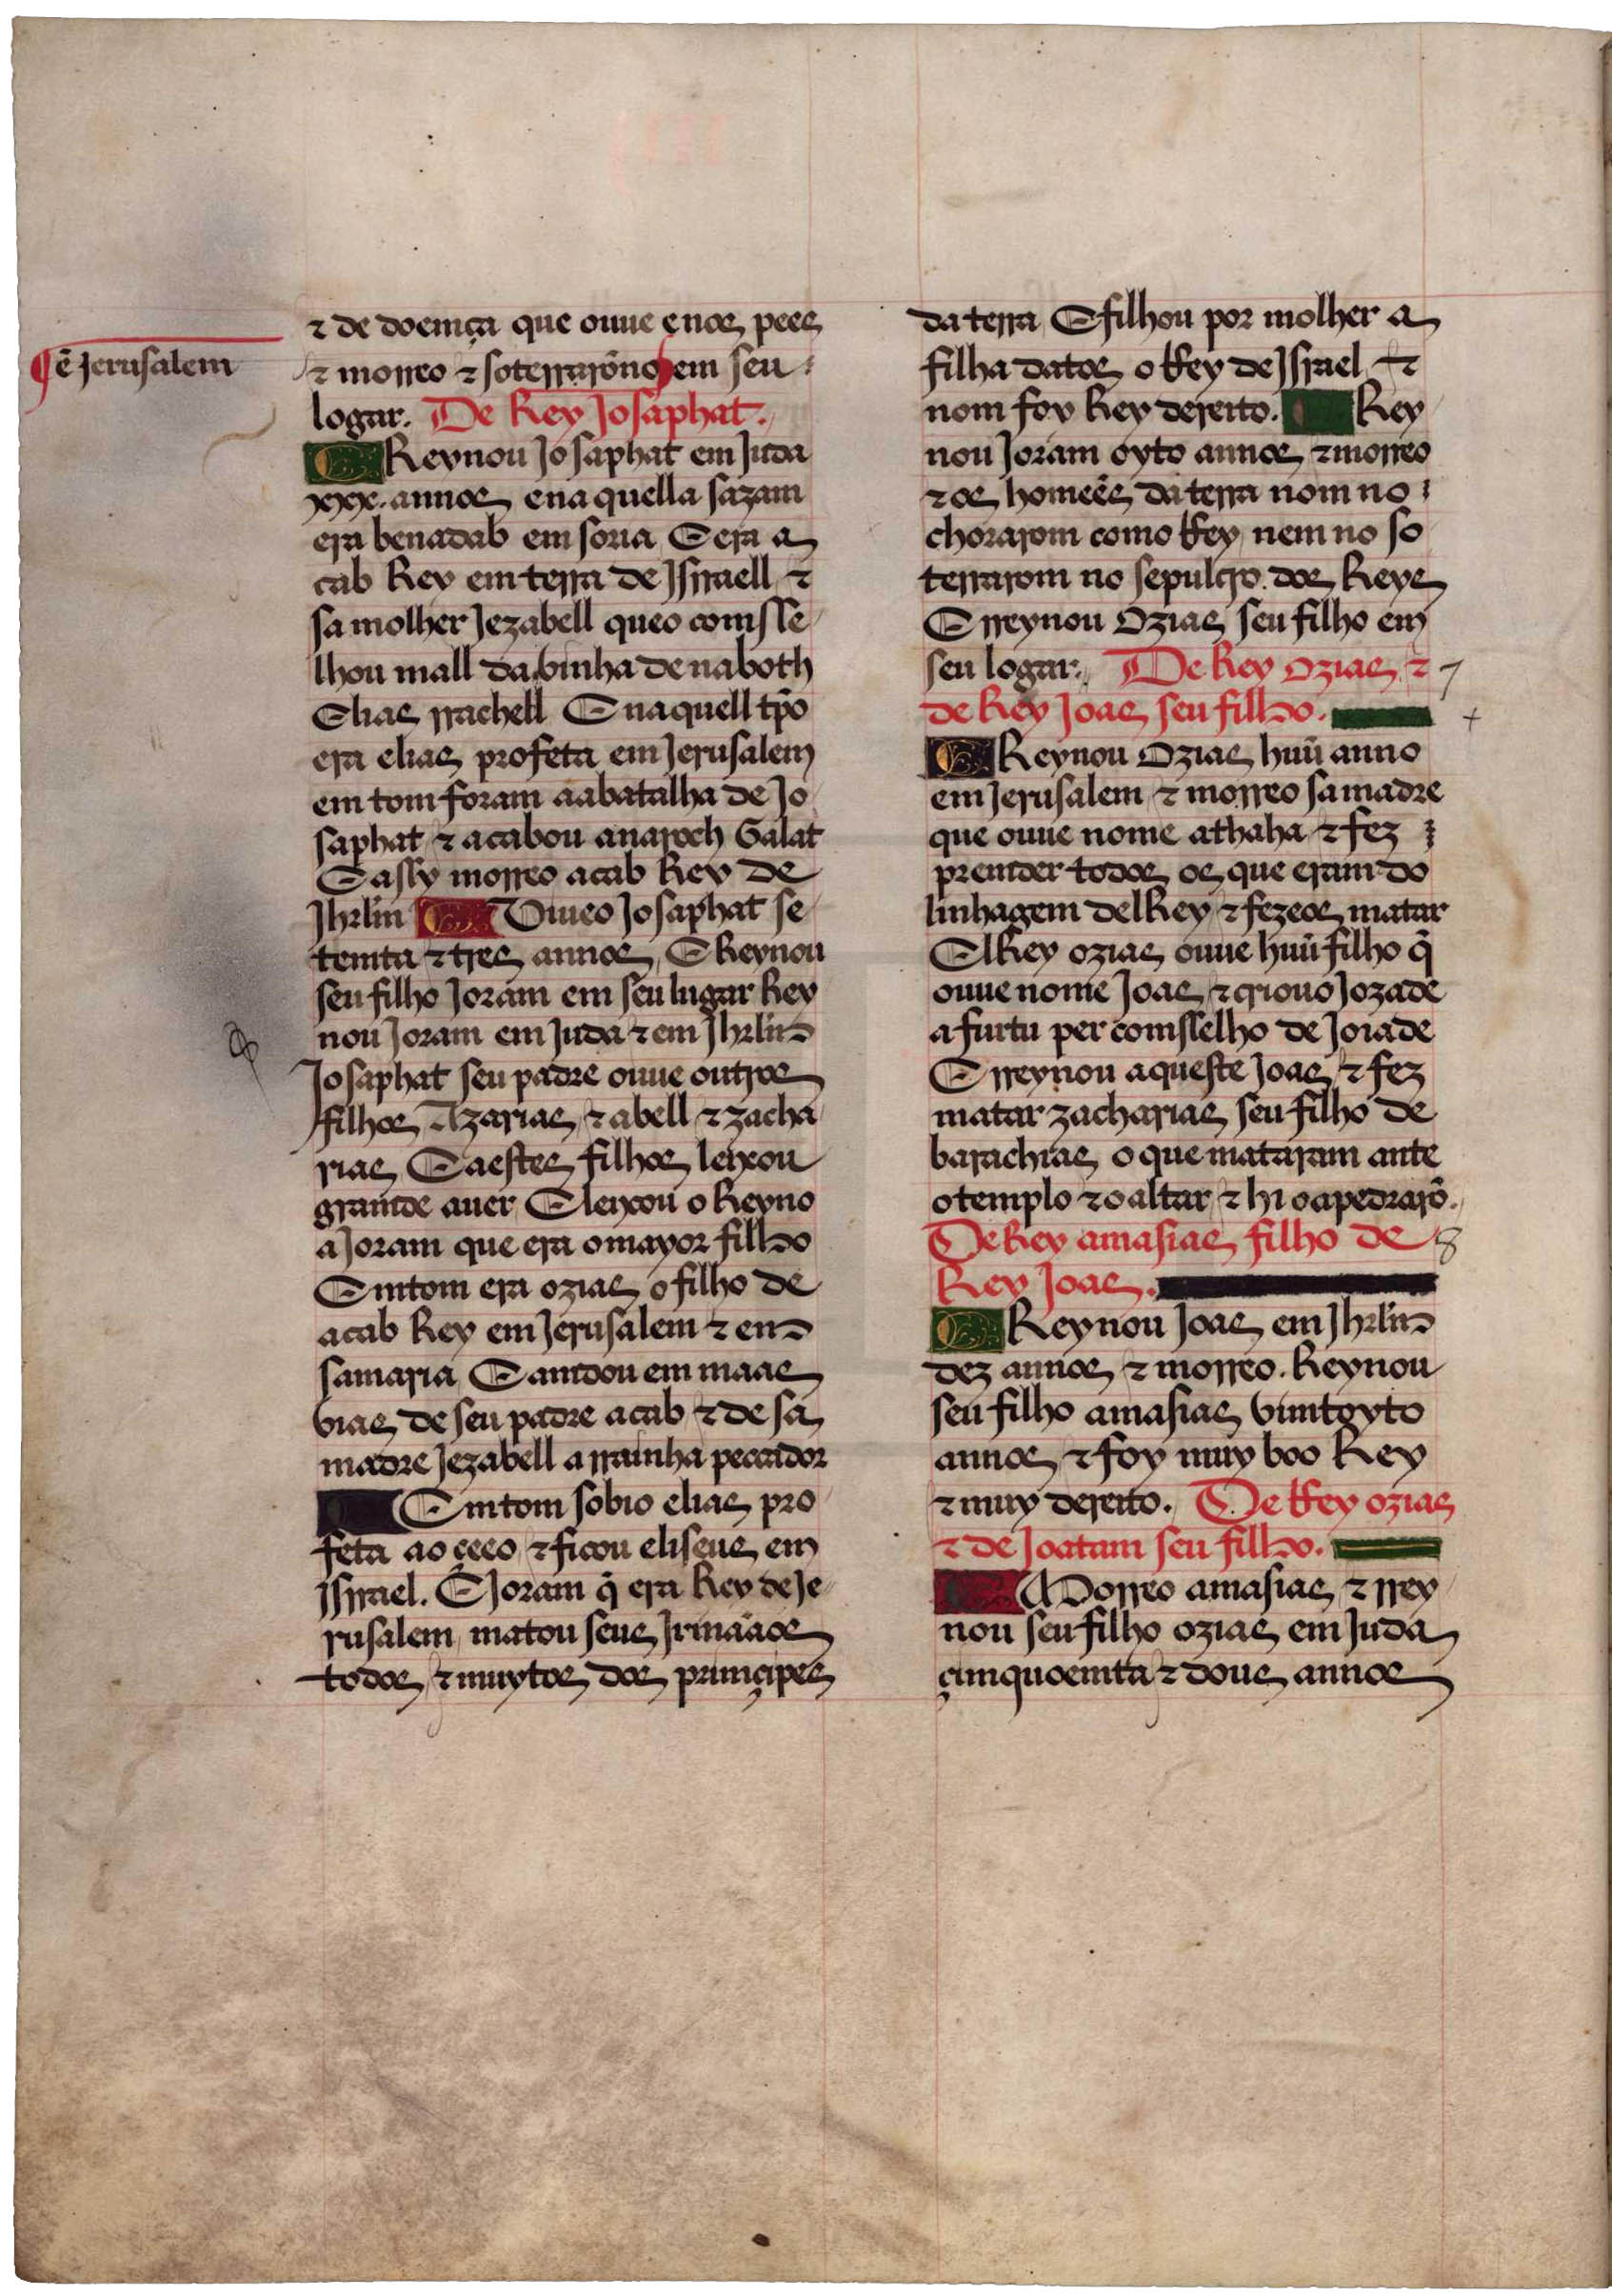 ¶ ẽ Jerusalem
⁊ de doemça que ouue ẽ nos pees
⁊ morreo ⁊ soterrarõno em seu
logar. De Rey Josaphat.
Reynou Josaphat em Juda
xxx. annos e na quella sazam
era benadab em soria E era a
cab Rey em terra de Jsrraell ⁊
sa molher Jezabell que o comsse
lhou mall da vinha de naboth
Elias rrachell E na quell tp̃o
era elias profeta em Jerusalem
em tom foram aa batalha de Jo
saphat ⁊ acabou anaroch Galat
E assy morreo acab Rey de
Jhrlm̃ Viueo Josaphat se
temta ⁊ tres annos E Reynou
seu filho Joram em seu lugar Rey
nou Joram em Juda ⁊ em Jhrlm̃
Josaphat seu padre ouue outros
filhos Azarias ⁊ abell ⁊ zacha
rias E aestes filhos leyxou
gramde auer E leyxou o Reyno
a Joram que era o mayor filho
Emtom era ozias o filho de
acab Rey em Jerusalem ⁊ em
samaria E amdou em maas
vias de seu padre acab ⁊ de sa
madre Jezabell a rrainha peccador
Emtom sobio elias pro
feta ao çeeo ⁊ ficou eliseus em
Jsrrael. E Joram q̃ era Rey de Je
rusalem matou seus Jrmãaos
todos ⁊ muytos dos primçipes
da terra E filhou por molher a
filha datos o Rey de Jsrael ⁊
nom foy Rey dereito. Rey
nou Joram oyto annos ⁊ morreo
⁊ os homeẽs da terra nom no
chorarom como Rey nem no so
terrarom no sepulcro dos Reys
E rreynou Ozias seu filho em
seu logar. De Rey Ozias ⁊ 7
de Rey Joas seu filho. +
Reynou Ozias huũ anno
em Jerusalem ⁊ morreo sa madre
que ouue nome athaha ⁊ fez
premder todos os que eram do
linhagem delRey ⁊ fezeos matar
ElRey ozias ouue huũ filho q̃
ouue nome Joas ⁊ criouo Jozade
a furtu per comsselho de Joiade
E rreynou aqueste Joas ⁊ fez
matar zacharias seu filho de
barachias o que mataram ante
o templo ⁊ o altar ⁊ hi o apedrarõ.
De Rey amasias filho de 8
Rey Joas.
Reynou Joas em Jhrlm̃
dez annos ⁊ morreo. Reynou
seu filho amasias vimtoyto
annos ⁊ foy muy boo Rey
⁊ muy dereito. De Rey ozias
⁊ de Joatam seu filho.
Morreo amasias ⁊ rrey
nou seu filho ozias em Juda
çimquoemta ⁊ dous annos